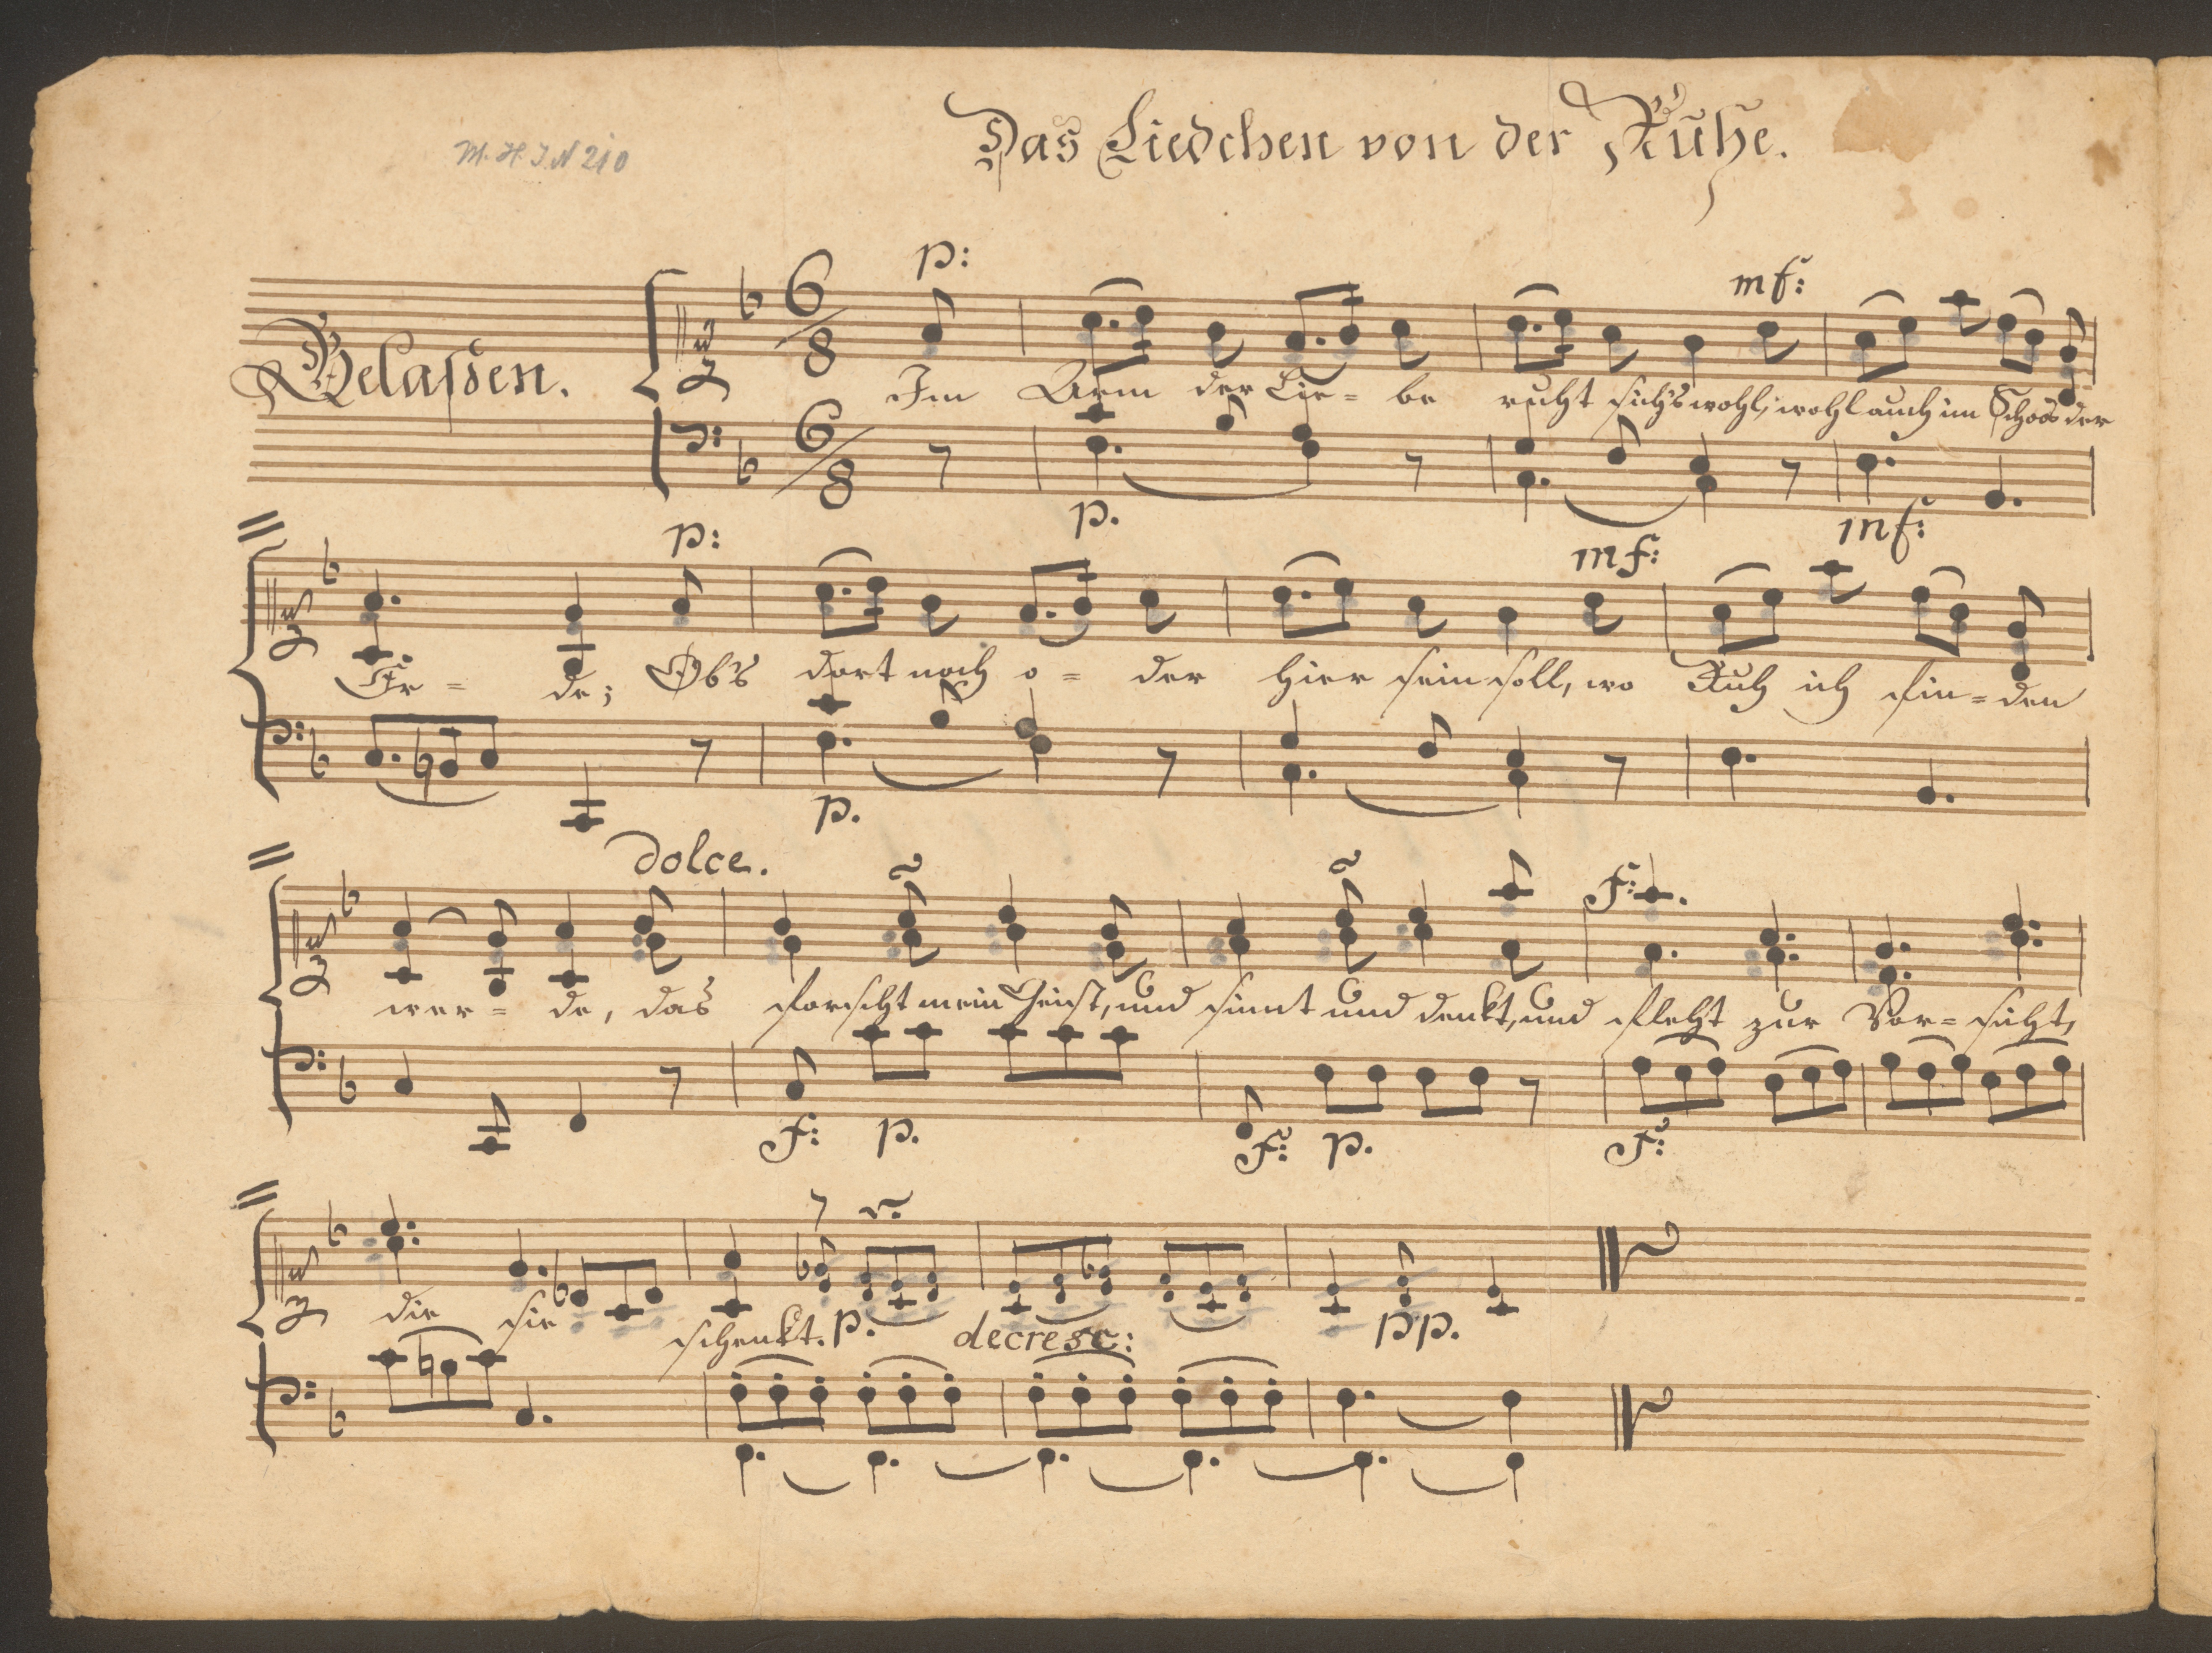 M. H. I. N 210
Das Liedchen von der Ruhe.
p:
mf:
Gelaßen.
6/8
Im Arm der Lie= be ruht sich's wohl, wohl auch im Schoos der
6/8
p.
mf:
p:
mf:
Er= de; Ob's dort noch o= der hier sein soll, wo Ruh ich fin= den
p.
dolce.
f:
wer= de, das forscht mein Geist, und sinnt und denkt, und fleht zur Vor= sicht,
f: p. f: p. f:
die sie schenkt. p. decresc: pp.